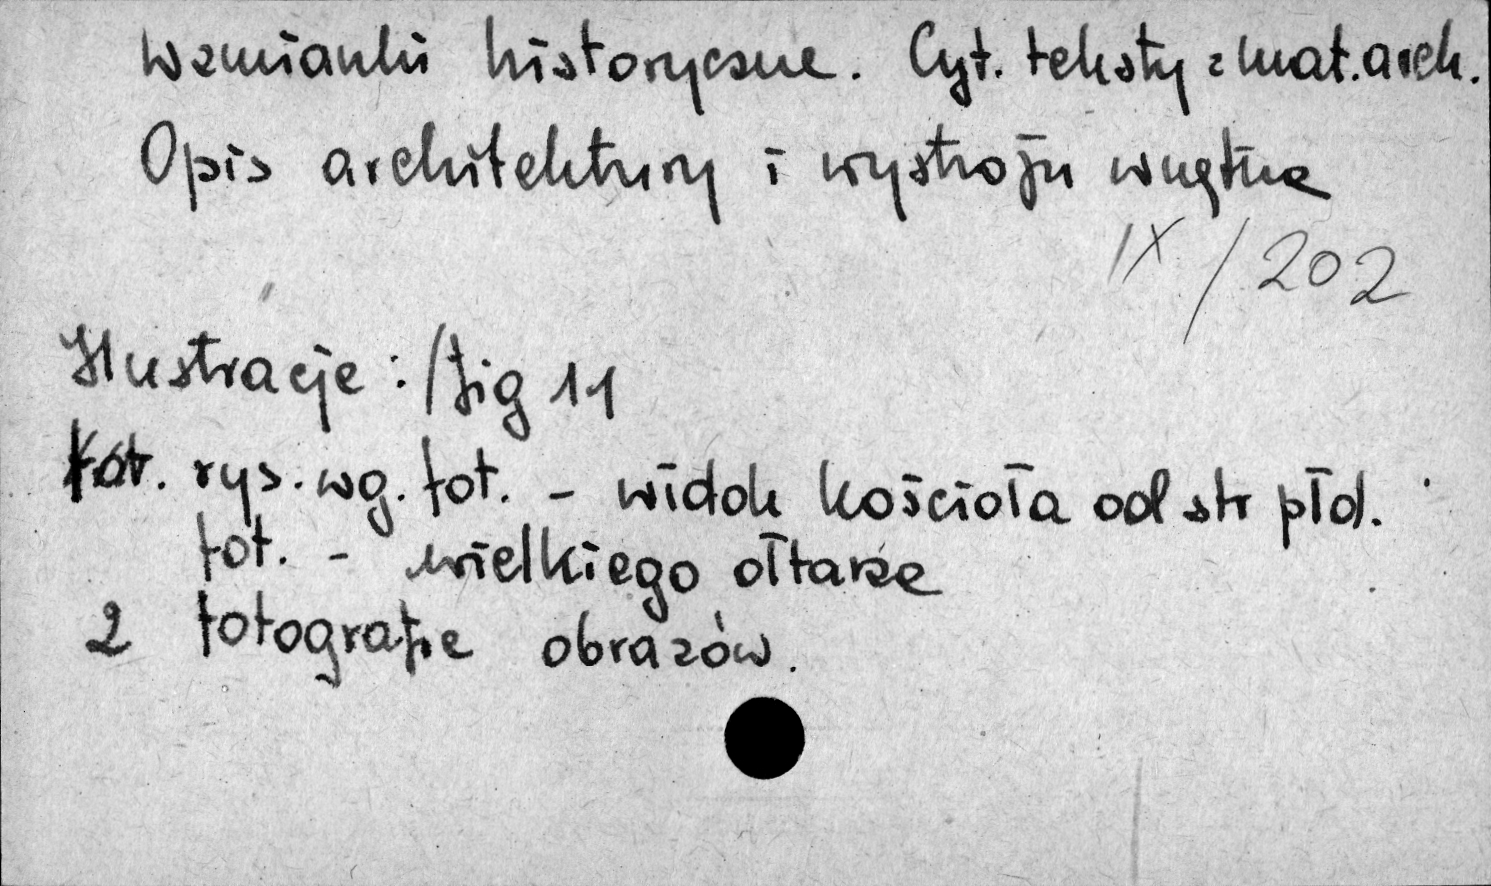 Wzmianki historyczne. Cyt. teksty z mat. arch.
Opis architektury i wystroju wnętrza
IX / 202
Ilustracje: / fig 11
rys. wg. fot. - widok kościoła od str płd.
fot. - wielkiego ołtarza
2 fotografie obrazów.